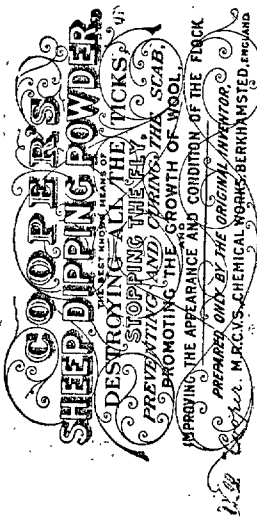 COOPER'S
SHEEP DIPPING POWDER.
THE BEST KNOWN MEANS OF
DESTROYING ALL THE TICKS,
STOPPING THE FLY,
PREVENTING AND CURING THE SCAB,
PROMOTING THE GROWTH OF WOOL,
IMPROVING THE APPEARANCE AND CONDITION OF THE FLOCK
PREPARED ONLY BY THE ORIGINAL INVENTOR,
Wm Cooper. M.R.C.V.S. CHEMICAL WORKS, BERKHAMSTED, ENGLAND